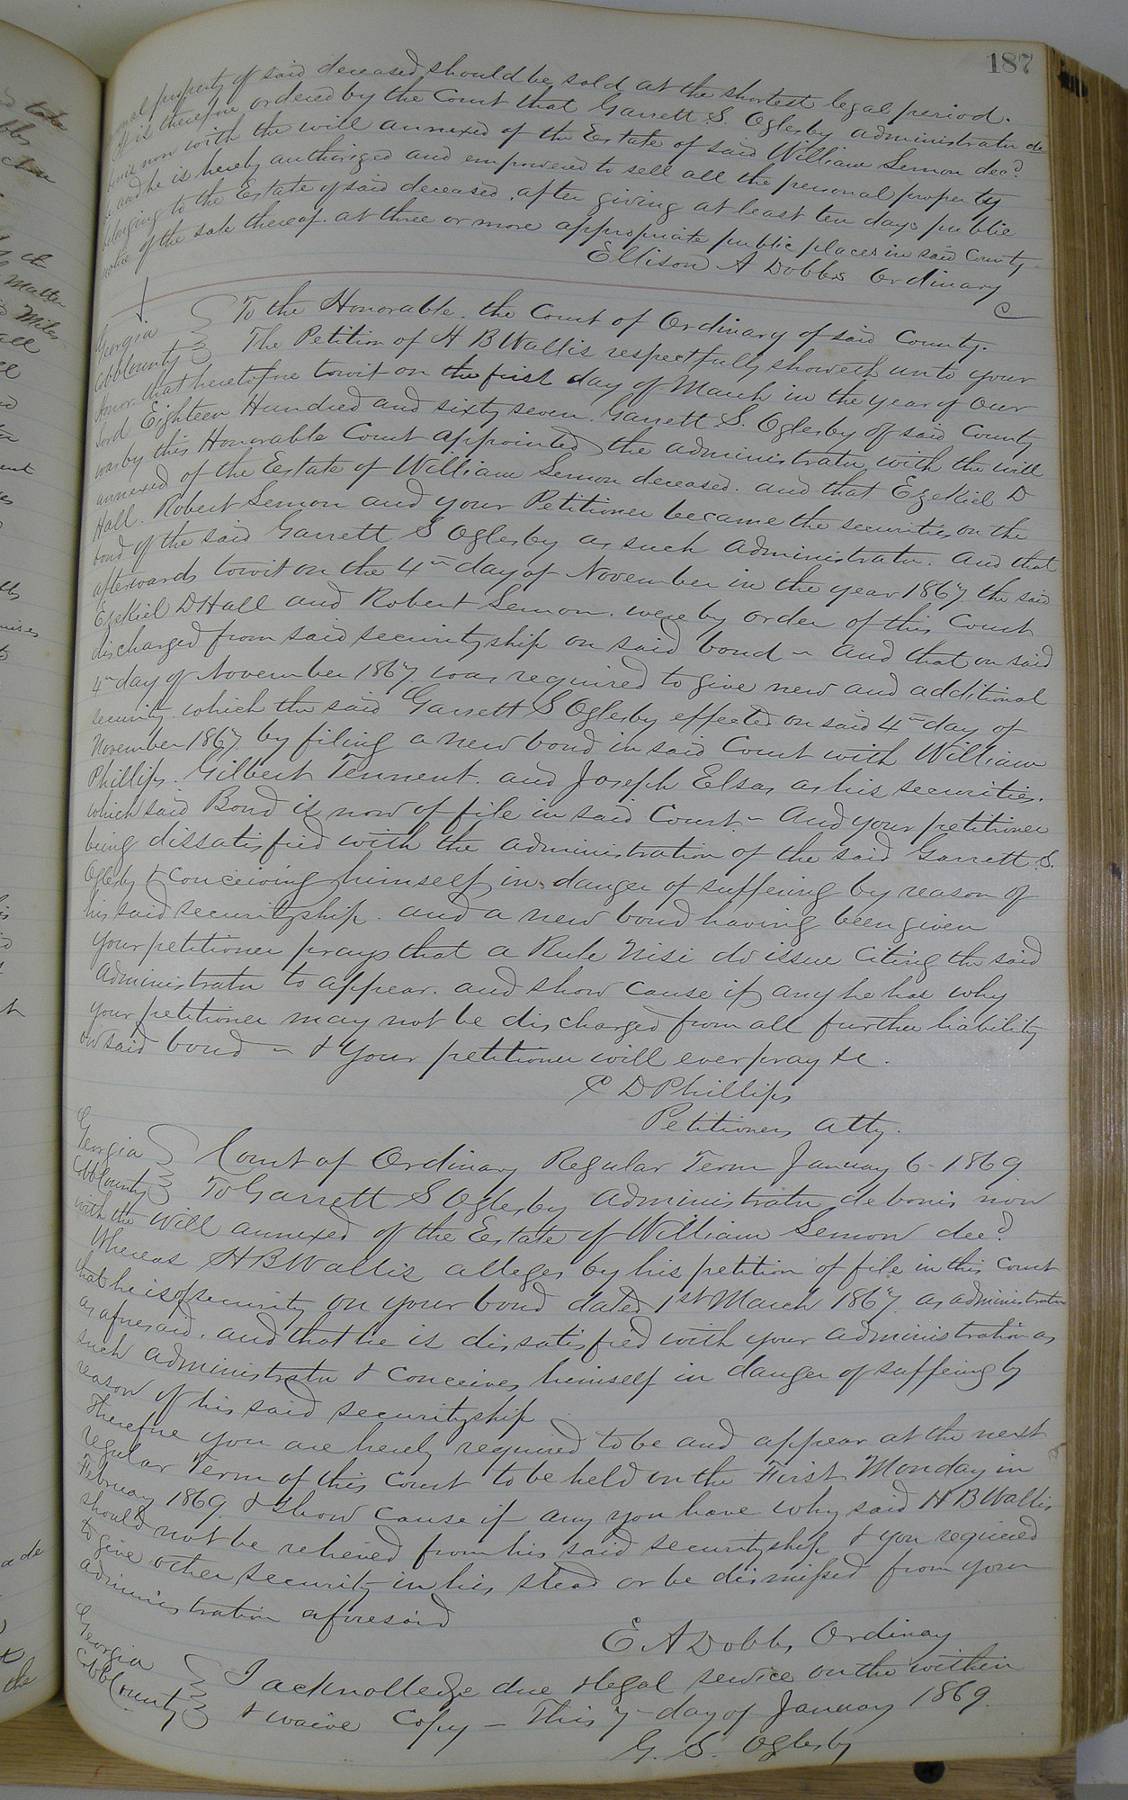 187
property of said deceased should be sold at the shortest legal period.
It is therefore ordered by the Court that Garrett S. Oglesby administrator de
bonis non with the will annexed of the Estate of said William Lemon decd.
be and he is hereby authorized and empowered to sell all the personal property
belonging to the Estate of said deceased, after giving at least ten days public
notice of the sale thereof. at three or more appropriate public places in said County
Ellison A Dobbs Ordinary
Georgia
Cobb County
To the Honorable. the Court of Ordinary of said County.
The Petition of H B Wallis respectfully showeth unto your
Honor that heretofore towit on the first day of March in the year of our
Lord Eighteen Hundred and sixty seven. Garrett S. Oglesby of said County
was by this Honorable Court appointed the administrator with the will
annexed of the Estate of William Lemon deceased. and that Ezekiel D
Hall. Robert Lemon and your Petitioner became the securities on the
bond of the said Garrett S Oglesby as such administrator. And that
afterwards towit on the 4th day of November in the year 1867 the said
Ezekiel D Hall and Robert Lemon. were by order of this Court
discharged from said securityship on said bond ~ And that on said
4th day of November 1867 was required to give new and additional
security which the said Garrett S Oglesby effected on said 4th day of
November 1867 by filing a new bond in said Court with William
Phillips. Gilbert Tennent. and Joseph Elsas as his securities.
which said Bond is now of file in said Court ~ And your petitioner
being dissatisfied with the administration of the said Garrett S.
Oglesby & conceiving himself in danger of suffering by reason of
his said securityship. and a new bond having been given
your petitioner prays that a Rule Nisi do issue citing the said
administrator to appear. and show cause if any he has why
your petitioner may not be discharged from all further liability
on said bond ~ & your petitioner will ever pray &c.
C D Phillips
Petitioners Atty.
Georgia
Cobb County
Court of Ordinary Regular Term January 6 - 1869
To Garrett S Oglesby administrator de bonis non
with the will annexed of the Estate of William Lemon decd.
Whereas H B Wallis alleges by his petition of file in this Court
that he is of security on your bond dated 1st March 1867 as administrator
as aforesaid. and that he is dissatisfied with your administration as
such administrator & conceives himself in danger of suffering by
reason of his said securityship
Therefore you are hereby required to be and appear at the next
regular Term of this Court to be held on the First Monday in
February 1869 & show cause if any you have why said H B Wallis
should not be relieved from his said securityship & you required
to give other security in his stead or be dismissed from your
administration aforesaid
E A Dobbs Ordinary
Georgia
Cobb County
I acknolledge due & legal service on the within
& waive Copy – This 7 day of January 1869.
G. S. Oglesby